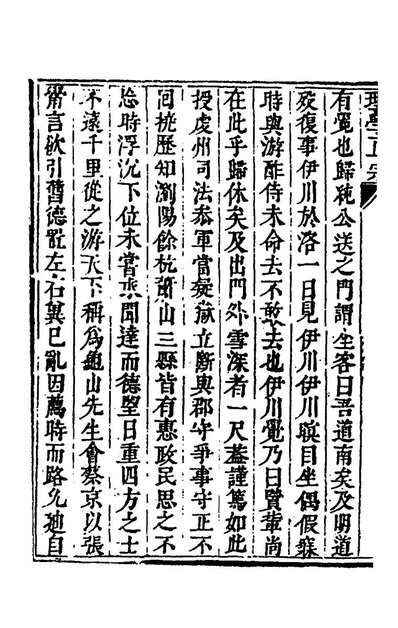 有冤也歸純公送之門謂坐客曰吾道南矣及明道
歿復事伊川於洛一日見伊川伊川瞑目坐偶假寐
時與游酢侍未命去不敢去也伊川覺乃曰賢輩尚
在此乎歸休矣及出門外雪深者一尺蓋謹篤如此
授虔州司法叅軍當疑獄立斷與郡守爭事守正不
回披歷知瀏陽餘杭蕭山三縣皆有惠政民思之不
忘時浮沉下位未嘗求聞達而德望日重四方之士
不遠千里從之游天下稱爲龜山先生會蔡京以張
觷言欲引舊德置左右兾已亂因薦時而路允迪自